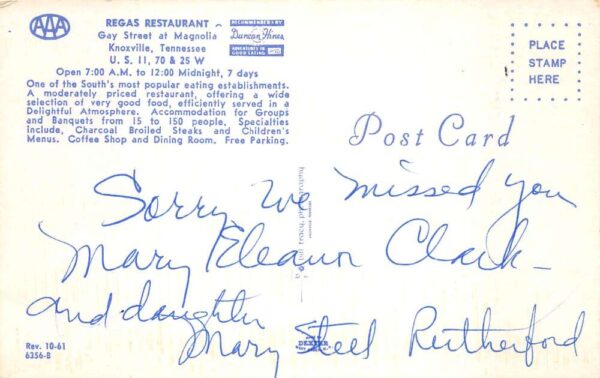 AAA
REGAS RESTAURANT
Gay Street at Magnolia
Knoxville, Tennessee
U. S. 11, 70 & 25 W
Open 7:00 A.M. to 12:00 Midnight, 7 days
One of the South's most popular eating establishments.
A moderately priced restaurant, offering a wide
selection of very good food, efficiently served in a
Delightful Atmosphere. Accommodation for Groups
and Banquets from 15 to 150 people. Specialties
include, Charcoal Broiled Steaks and Children's
Menus. Coffee Shop and Dining Room. Free Parking.
RECOMMENDED BY
Duncan Hines
ADVENTURES IN
GOOD EATING
PLACE
STAMP
HERE
Post Card
Sorry we missed you
Mary Eleanor Clark -
and daughter
Mary Steel Rutherford
DEXTER
Rev. 10-61
6356-B